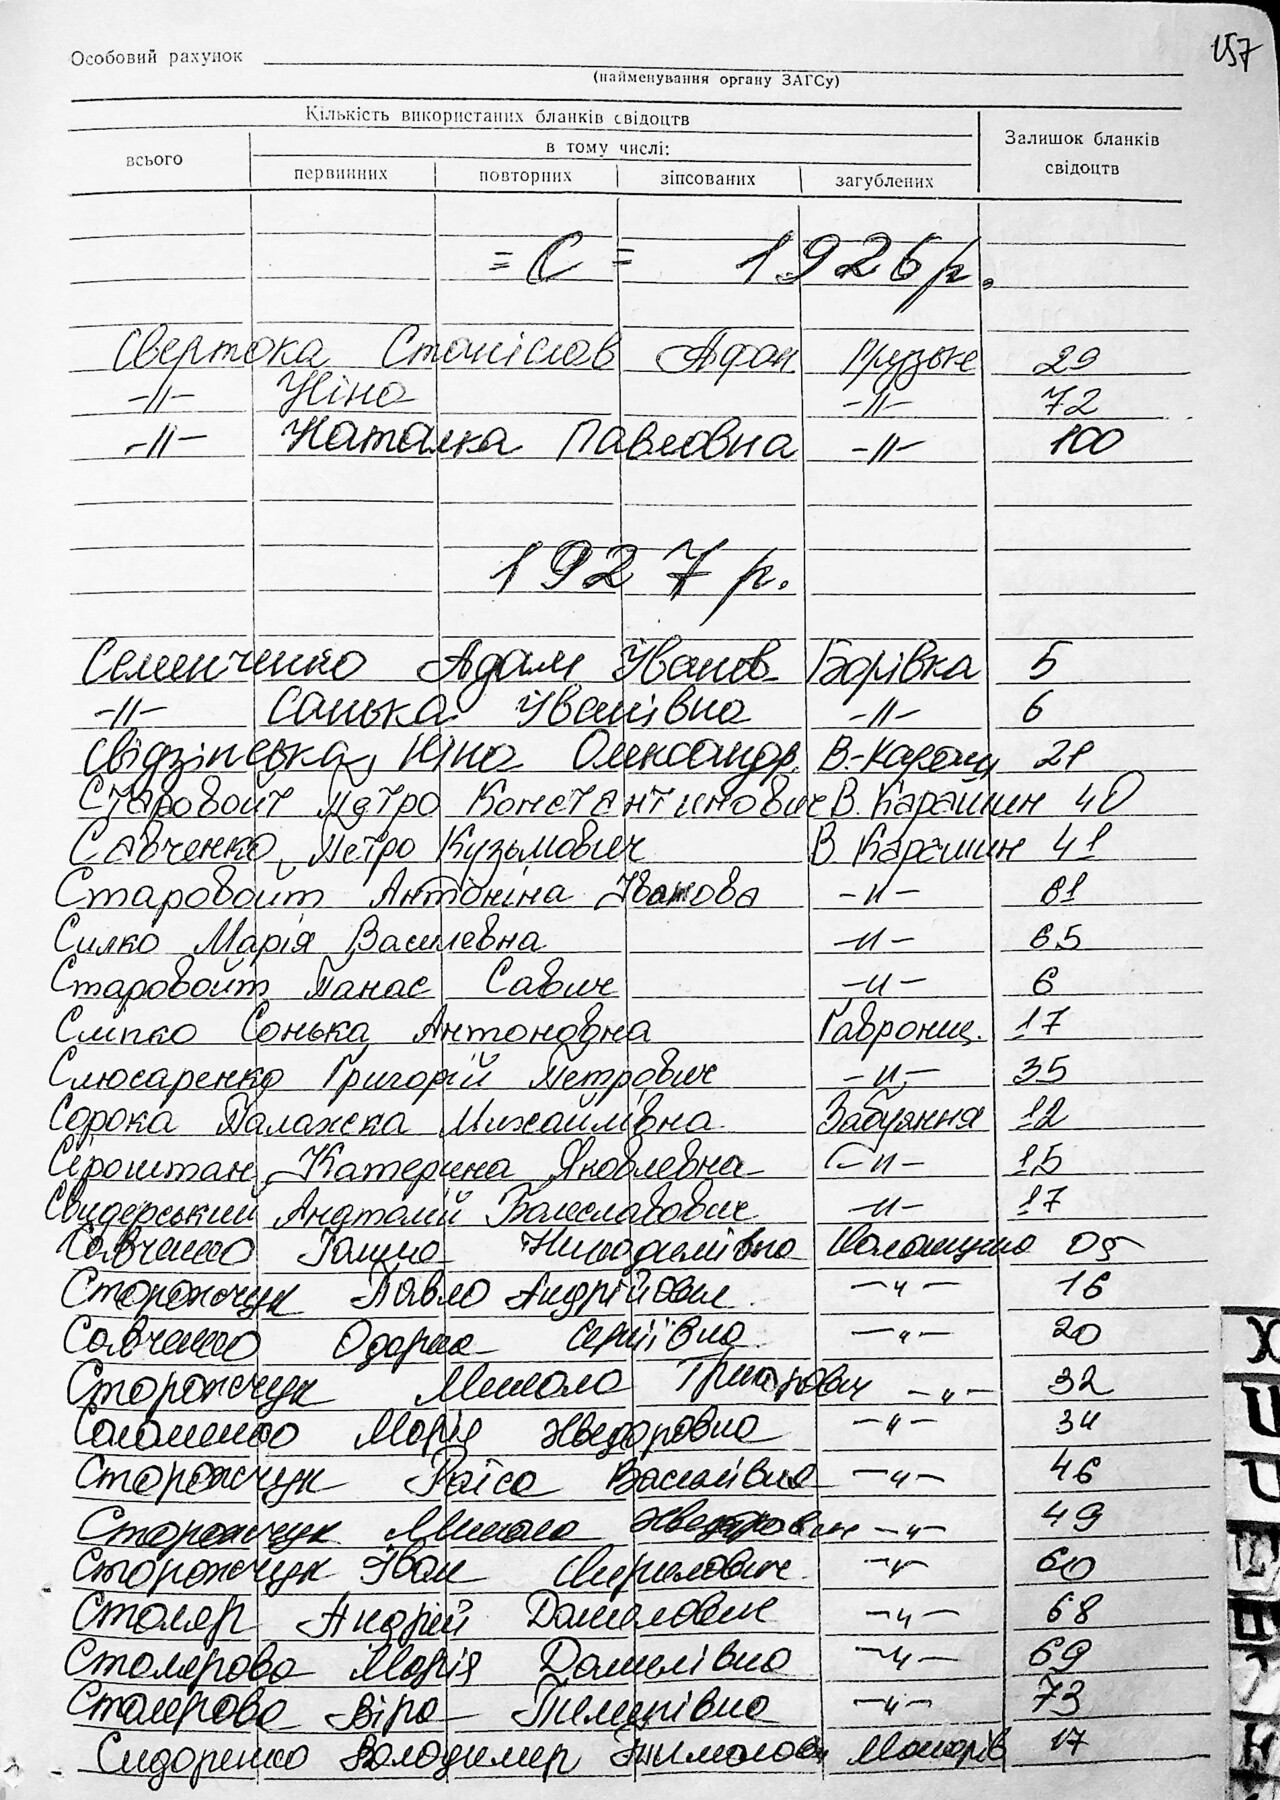 157
Особовий рахунок
(найменування органу ЗАГСу)
Кількість використаних бланків свідоцтв
Залишок бланків свідоцтв
всього
в тому числі:
первинних повторних зіпсованих загублених
= С = 1926 р.
Свертока Станіслав Афан Грузьке 29
-//- Ніна -//- 72
-//- Наталка Павловна -//- 100
1927 р.
Семенченко Адам Іванов Борівка 5
-//- Санька Іванівна -//- 6
Свідзінська Ніна Олександр. В.-Карашин 21
Старовойт Петро Константинович В. Карашин 40
Савченко Петро Кузьмович В Карашин 41
Старовойт Антоніна Іванова -//- 61
Силко Марія Василевна -//- 65
Старовойт Панас Савич -//- 6
Сліпко Сонька Антоновна Гаврониц. 17
Слюсаренко Григорій Петрович -//- 35
Сорока Палажка Михайлівна Забуяння 12
Сіроштан Катерина Яковлевна -//- 15
Свидерський Анатолій Болеславович -//- 17
Савченко Галина 05
Сторожчук Павло Андрійович -//- 16
Савченко Одарка Сергіївна -//- 20
Сторожчук Микола Григорович -//- 32
Соломенко Марія Хведоровна -//- 34
Сторожчук Раїса Василівна -//- 46
Сторожчук Микола Хведорович -//- 49
Сторожчук Іван Кирилович -//- 60
Столяр Андрій Данилович -//- 68
Столярова Марія Данилівна -//- 69
Столярова Віра Пилипівна -//- 73
Сидоренко Володимир Макарів 17